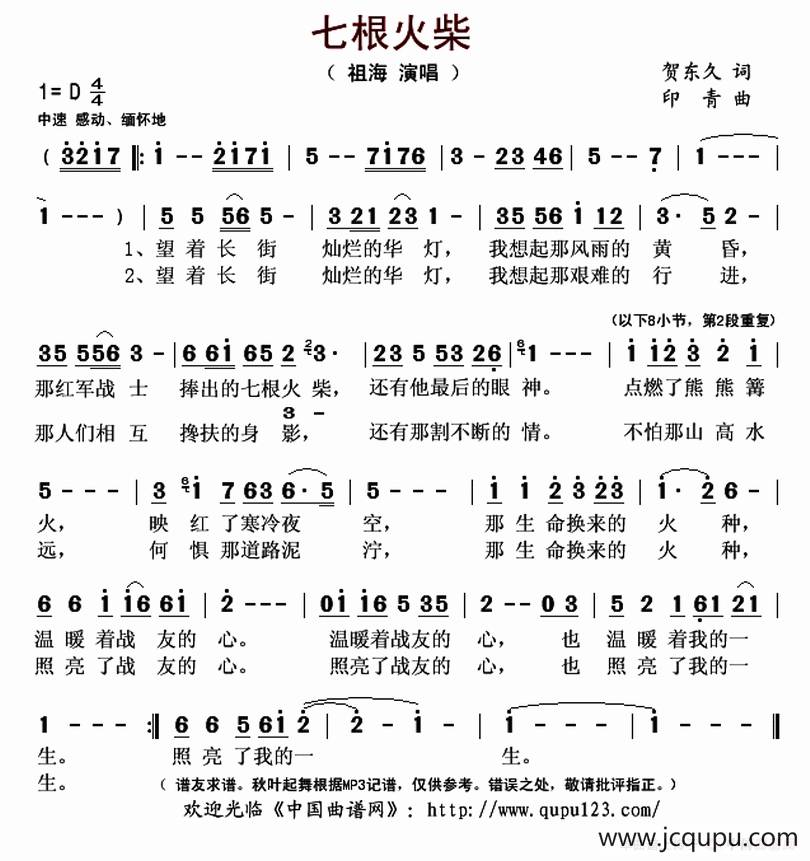 七根火柴
（ 祖海 演唱 ）
贺东久 词
1= D 4/4
印 青 曲
中速 感动、缅怀地
( 3217 ‖: 1 - - 2171 | 5 - - 7176 | 3 - 23 46 | 5 - - 7 | 1 - - - |
1 - - - ) | 5 5 56 5 - | 3 21 23 1 - | 35 56 1 12 | 3· 5 2 - |
1、望 着 长 街 灿烂的华 灯， 我想起那风雨的 黄 昏，
2、望 着 长 街 灿烂的华 灯， 我想起那艰难的 行 进，
（以下8小节，第2段重复）
35 556 3 - | 6 61 65 2 2 3· | 23 5 53 26 | 6 1 - - - | 1 12 3 2 1 |
那红军战 士 捧出的七根火 柴， 还有他最后的眼 神。 点燃了熊 熊 篝
3 -
那人们相 互 搀扶的身 影， 还有那割不断的 情。 不怕那山 高 水
5 - - - | 3 6 1 7 63 6·5 | 5 - - - | 1 1 2 3 23 | 1· 2 6 - |
火， 映 红 了寒冷夜 空， 那 生 命换来的 火 种，
远， 何 惧 那道路泥 泞， 那 生 命换来的 火 种，
6 6 1 16 61 | 2 - - - | 01 16 5 35 | 2 - - 0 3 | 5 1 61 21 |
温 暖 着战 友的 心。 温暖着战友的 心， 也 温 暖 着我的一
照 亮 了战 友的 心。 照亮了战友的 心， 也 照 亮 了我的一
1 - - :‖ 6 6 5 61 2 | 2 - 2 - 1 | 1 - - - | 1 - - - ‖
生。 照 亮 了我的一 生。
生。 （ 谱友求谱。秋叶起舞根据MP3记谱，仅供参考。错误之处，敬请批评指正。）
欢迎光临《中国曲谱网》：http://www.qupu123.com/
www.jcqupu.com